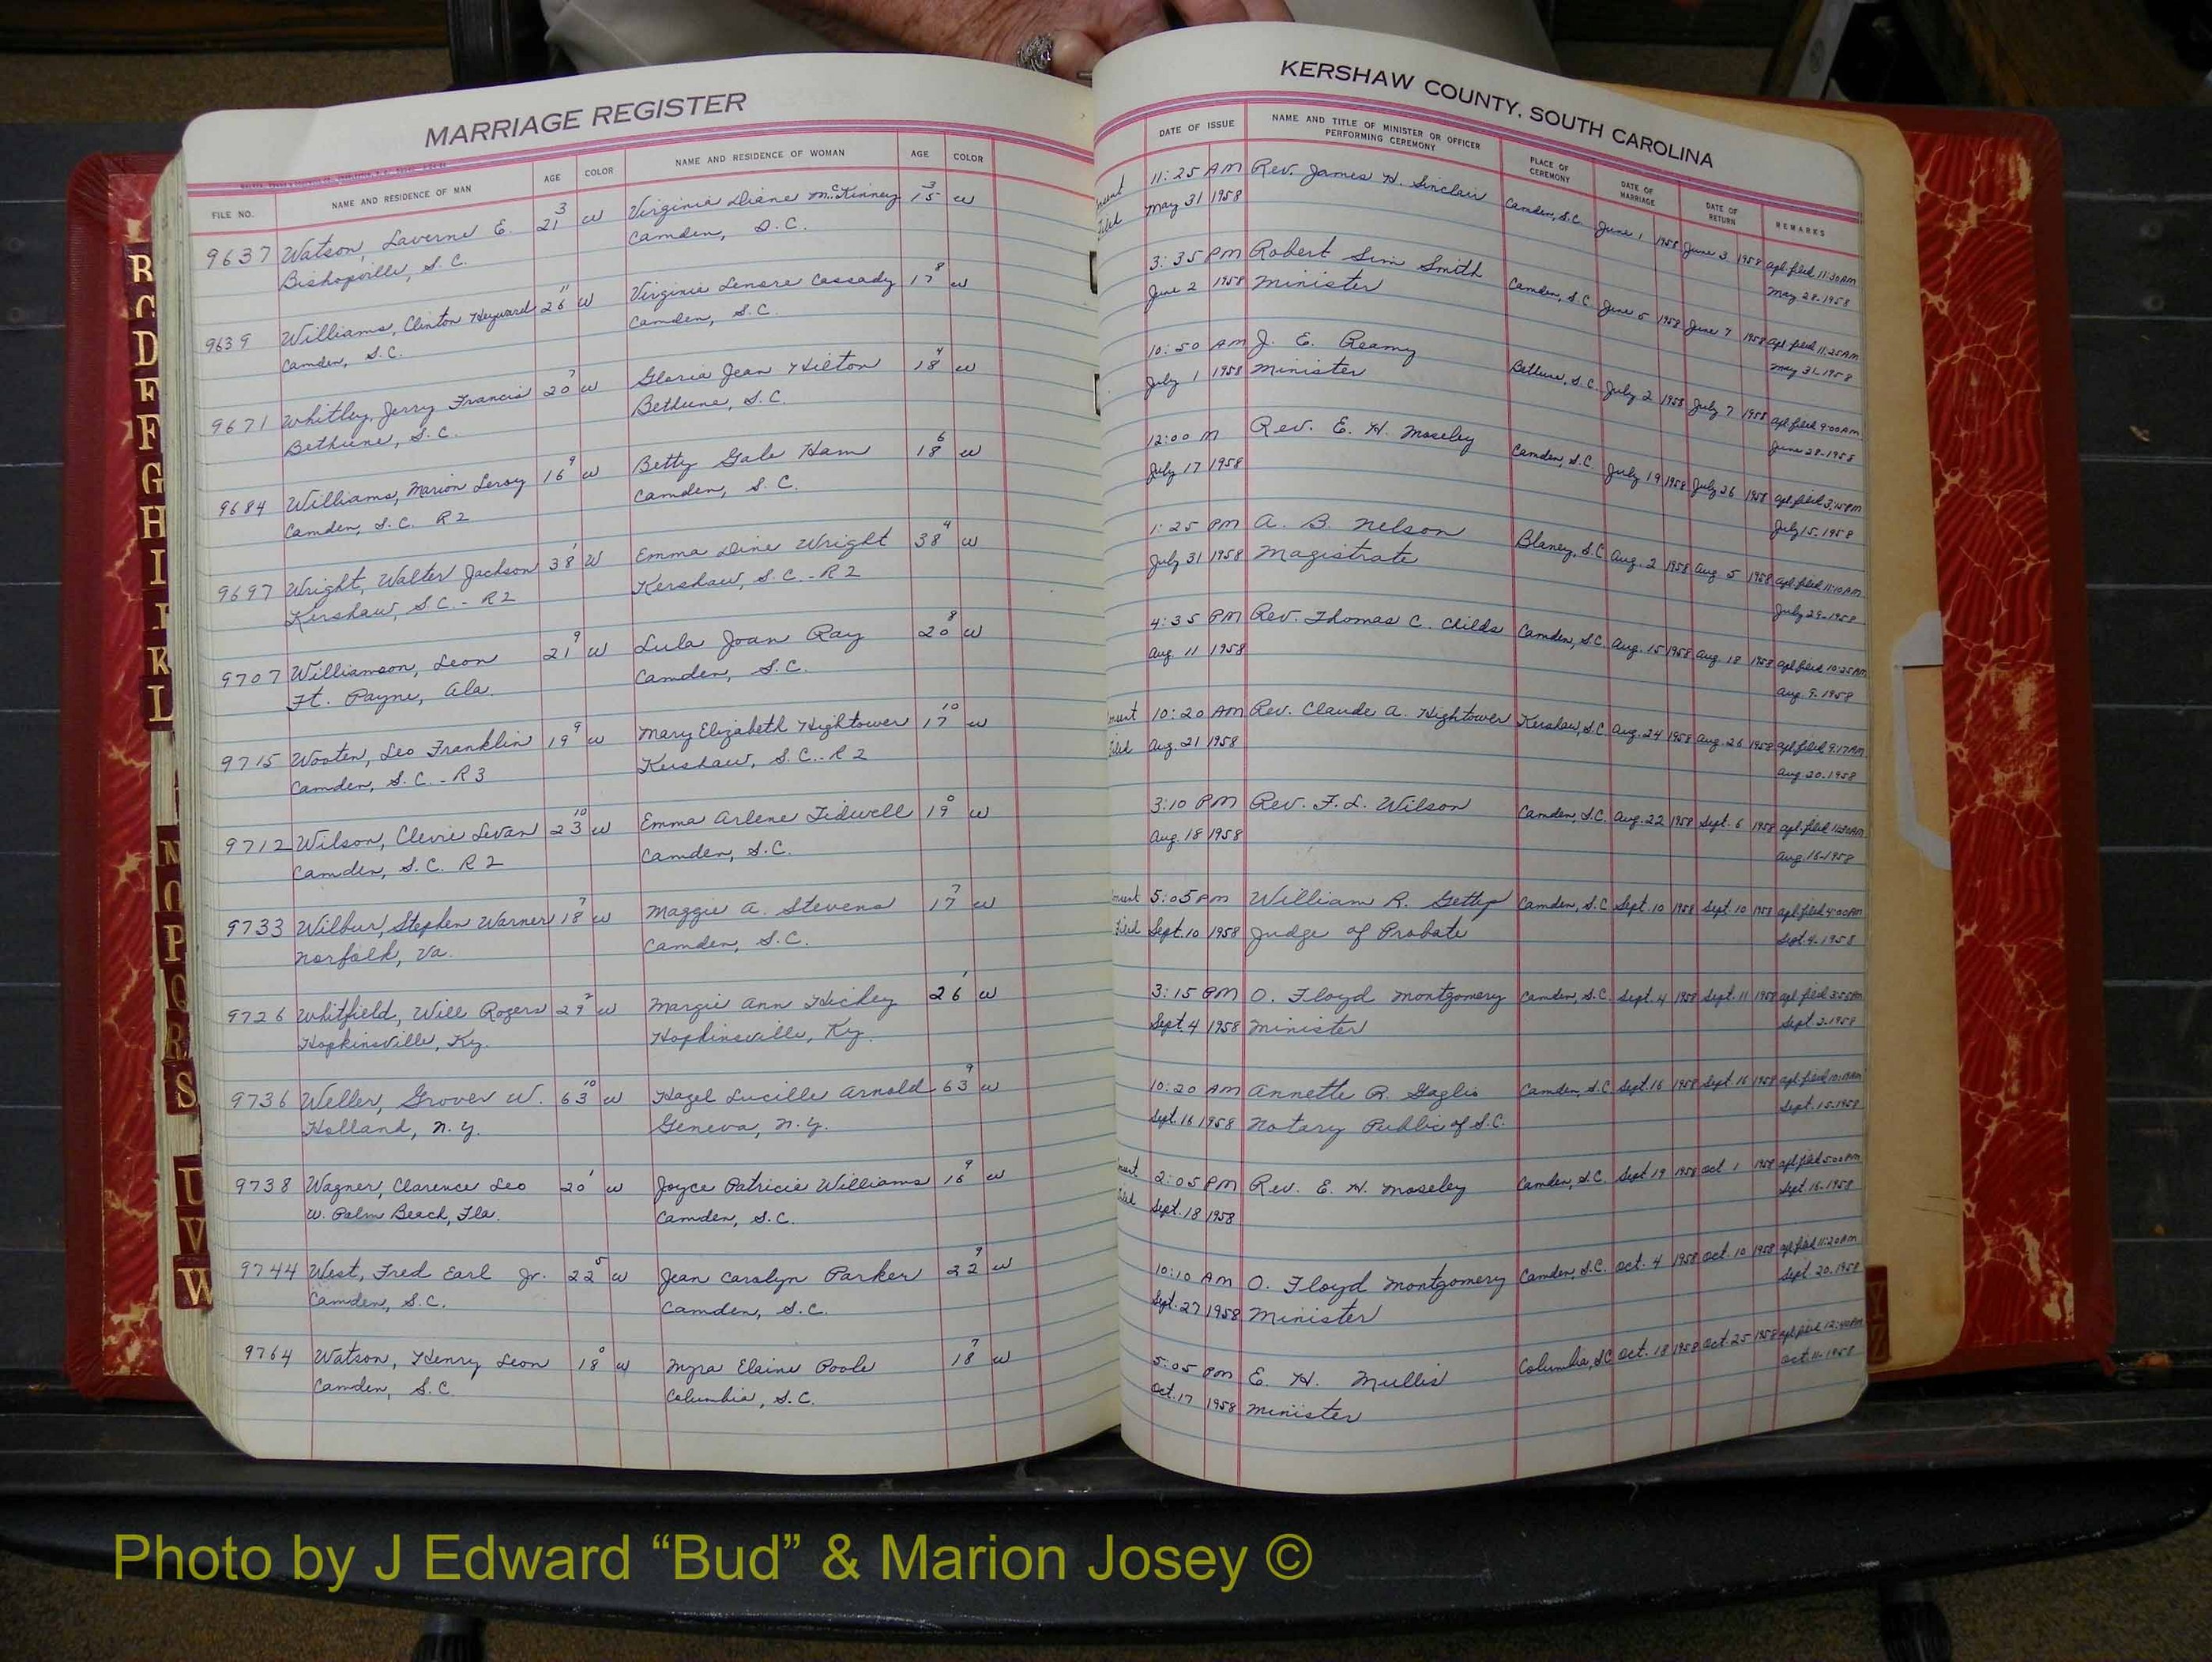 MARRIAGE REGISTER
KERSHAW COUNTY, SOUTH CAROLINA
FILE NO. NAME AND RESIDENCE OF MAN AGE COLOR NAME AND RESIDENCE OF WOMAN AGE COLOR
DATE OF ISSUE NAME AND TITLE OF MINISTER OR OFFICER PERFORMING CEREMONY PLACE OF CEREMONY DATE OF MARRIAGE DATE OF RETURN REMARKS
9637 Watson, Laverne E. 21 3 W Virginia Diane McKinney 15 3 W 11:25 AM Rev. James H. Sinclair Camden, S.C. June 1 1958 June 3 1958 apl. filed 11:30 AM
Bishopville, S.C. Camden, S.C. Filed May 31 1958 May 28-1958
9639 Williams, Clinton Heyward 26 11 W Virginia Lenore Cassady 17 8 W 3:35 PM Robert Sim Smith Camden, S.C. June 5 1958 June 7 1958 apl. filed 11:25 AM
Camden, S.C. Camden, S.C. June 2 1958 Minister May 31-1958
9671 Whitley, Jerry Francis 20 7 W Gloria Jean Hilton 18 4 W 10:50 AM J. E. Reamy Bethune, S.C. July 2 1958 July 7 1958 apl. filed 9:00 AM
Bethune, S.C. Bethune, S.C. July 1 1958 Minister June 28-1958
9684 Williams, Marion Leroy 16 9 W Betty Gale Ham 18 6 W 12:00 M Rev. E. H. Moseley Camden, S.C. July 19 1958 July 26 1958 apl. filed 3:15 PM
Camden, S.C. R2 Camden, S.C. July 17 1958 July 15-1958
9697 Wright, Walter Jackson 38 1 W Emma Dine Wright 38 4 W 1:25 PM A. B. Nelson Blaney, S.C. Aug. 2 1958 Aug 5 1958 apl. filed 11:10 AM
Kershaw, S.C. - R2 Kershaw, S.C. - R2 July 31 1958 Magistrate July 29-1958
9707 Williamson, Leon 21 9 W Lula Joan Ray 20 8 W 4:35 PM Rev. Thomas C. Childs Camden, S.C. Aug. 15 1958 Aug 18 1958 apl. filed 10:25 AM
Ft. Payne, Ala. Camden, S.C. Aug. 11 1958 Aug 9-1958
9715 Wooten, Leo Franklin 19 9 W Mary Elizabeth Hightower 17 10 W 10:20 AM Rev. Claude A. Hightower Kershaw, S.C. Aug. 24 1958 Aug. 26 1958 apl. filed 9:17 AM
Camden, S.C. - R3 Kershaw, S.C. - R2 Filed Aug. 21 1958 Aug. 20-1958
9712 Wilson, Clevie Levan 23 10 W Emma Arlene Tidwell 19 0 W 3:10 PM Rev. F. L. Wilson Camden, S.C. Aug. 22 1958 Sept. 6 1958 apl. filed
Camden, S.C. R2 Camden, S.C. Aug. 18 1958 Aug. 16-1958
9733 Wilbur, Stephen Warner 18 7 W Maggie A. Stevens 17 7 W 5:05 PM William R. Getty Camden, S.C. Sept. 10 1958 Sept. 10 1958 apl. filed 4:00 PM
Norfolk, Va. Camden, S.C. Filed Sept. 10 1958 Judge of Probate Sept. 4-1958
9726 Whitfield, Will Rogers 29 2 W Margie Ann Hickey 26 1 W 3:15 PM O. Floyd Montgomery Camden, S.C. Sept. 4 1958 Sept. 11 1958 apl. filed
Hopkinsville, Ky. Hopkinsville, Ky. Sept. 4 1958 Minister Sept. 2-1958
9736 Weller, Grover W. 63 10 W Hazel Lucille Arnold 63 9 W 10:20 AM Annette R. Gaglio Camden, S.C. Sept. 16 1958 Sept. 16 1958 apl. filed
Holland, N.Y. Geneva, N.Y. Sept. 16 1958 Notary Public of S.C. Sept. 15-1958
9738 Wagner, Clarence Leo 20 1 W Joyce Patricia Williams 16 9 W 2:05 PM Rev. E. H. Moseley Camden, S.C. Sept 19 1958 Oct 1 1958 apl. filed 5:00 PM
W. Palm Beach, Fla. Camden, S.C. Filed Sept. 18 1958 Sept 16-1958
9744 West, Fred Earl Jr. 22 5 W Jean Carolyn Parker 22 9 W 10:10 AM O. Floyd Montgomery Camden, S.C. Oct. 4 1958 Oct. 10 1958 apl. filed 11:20 AM
Camden, S.C. Camden, S.C. Sept. 27 1958 Minister Sept 20-1958
9764 Watson, Henry Leon 18 0 W Myra Elaine Poole 18 7 W 5:05 PM E. H. Mullis Columbia, SC Oct. 18 1958 Oct 25 1958 apl. filed 12:40 PM
Camden, S.C. Columbia, S.C. Oct. 17 1958 Minister Oct 11-1958
D
F
G
H
I
K
L
N
O
P
Q
R
S
U
V
W
Photo by J Edward “Bud” & Marion Josey ©